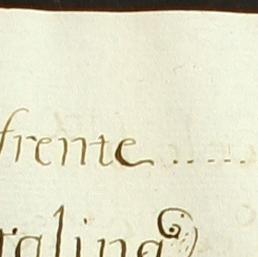 frente .....
talina